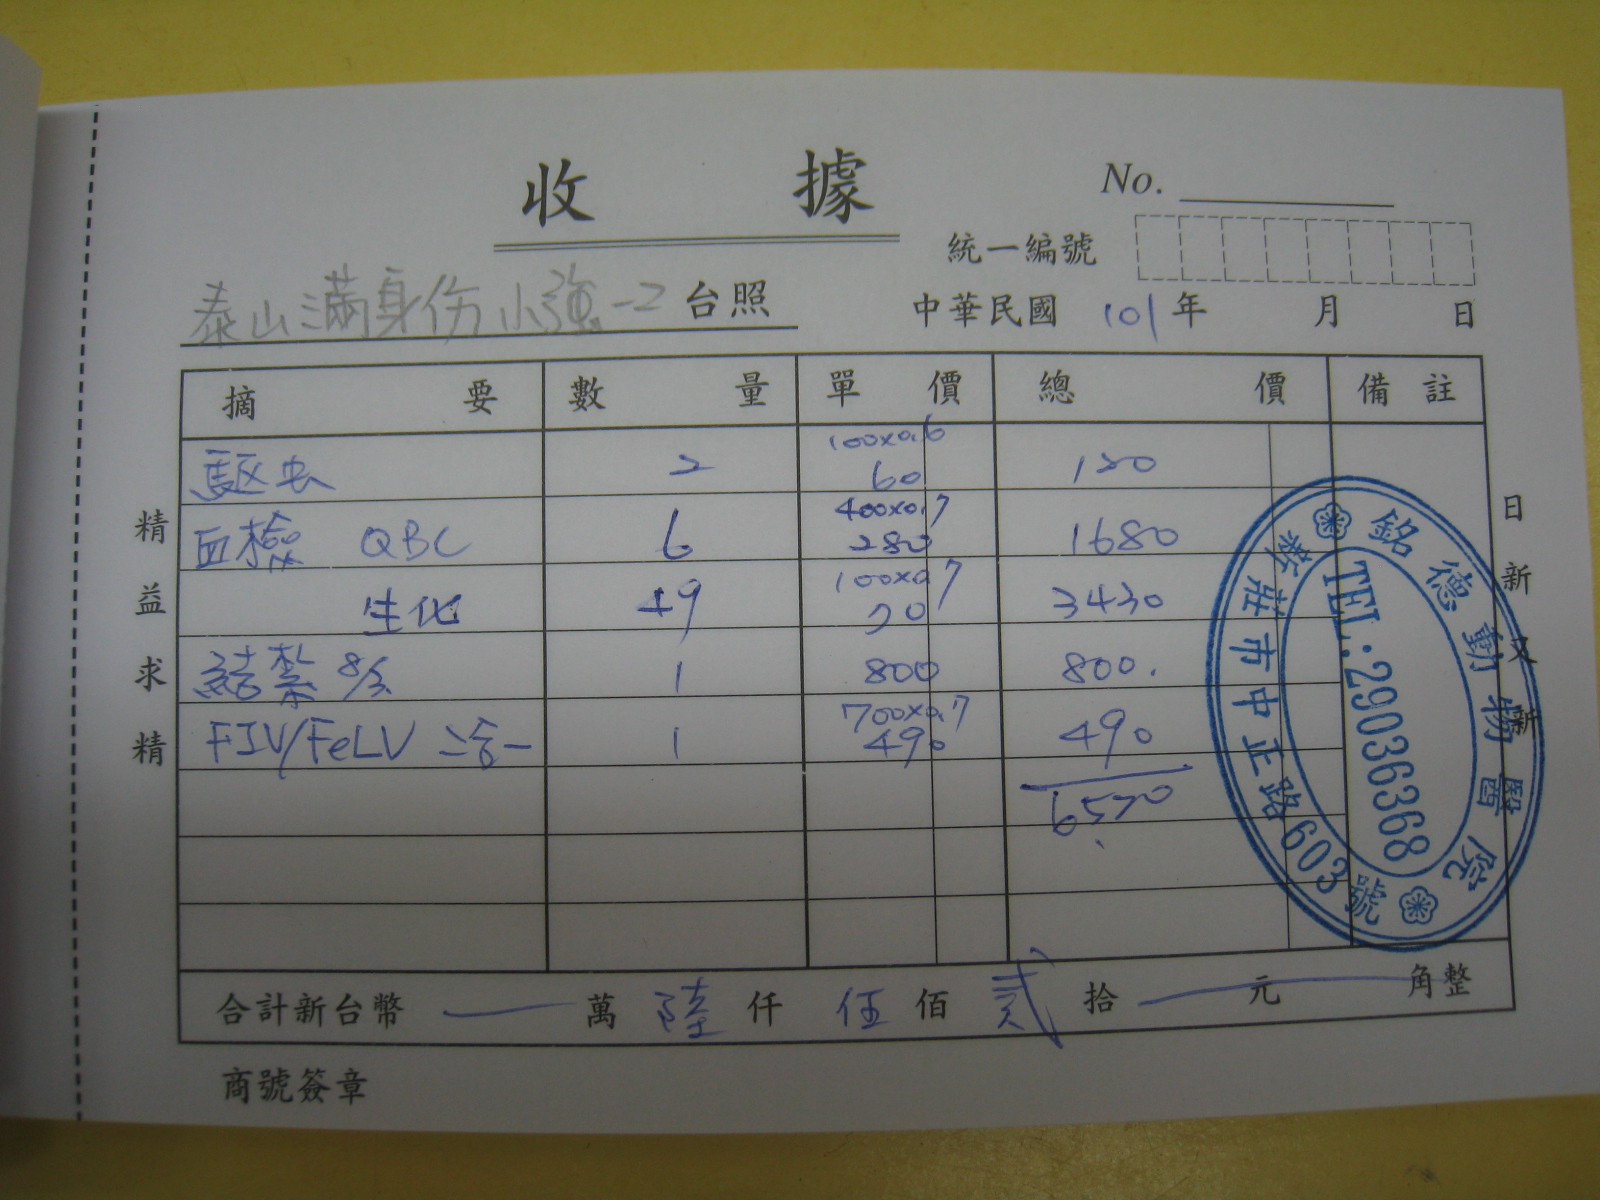 收據
No.
統一編號
泰山滿身伤小強-2 台照
中華民國 101 年 月 日
摘要 數量 單價 總價 備註
100x0.6
駆虫 2 60 120
400x0.7
血檢 QBC 6 280 1680
100x0.7
生化 49 70 3430
結紮 8/3 1 800 800.
700x0.7
FIV/FeLV 二合一 1 490 490
6520
合計新台幣 — 萬 陸 仟 伍 佰 貳 拾 — 元 — 角整
商號簽章
精益求精
日新又新
銘德動物醫院
TEL:29036368
新莊市中正路603號